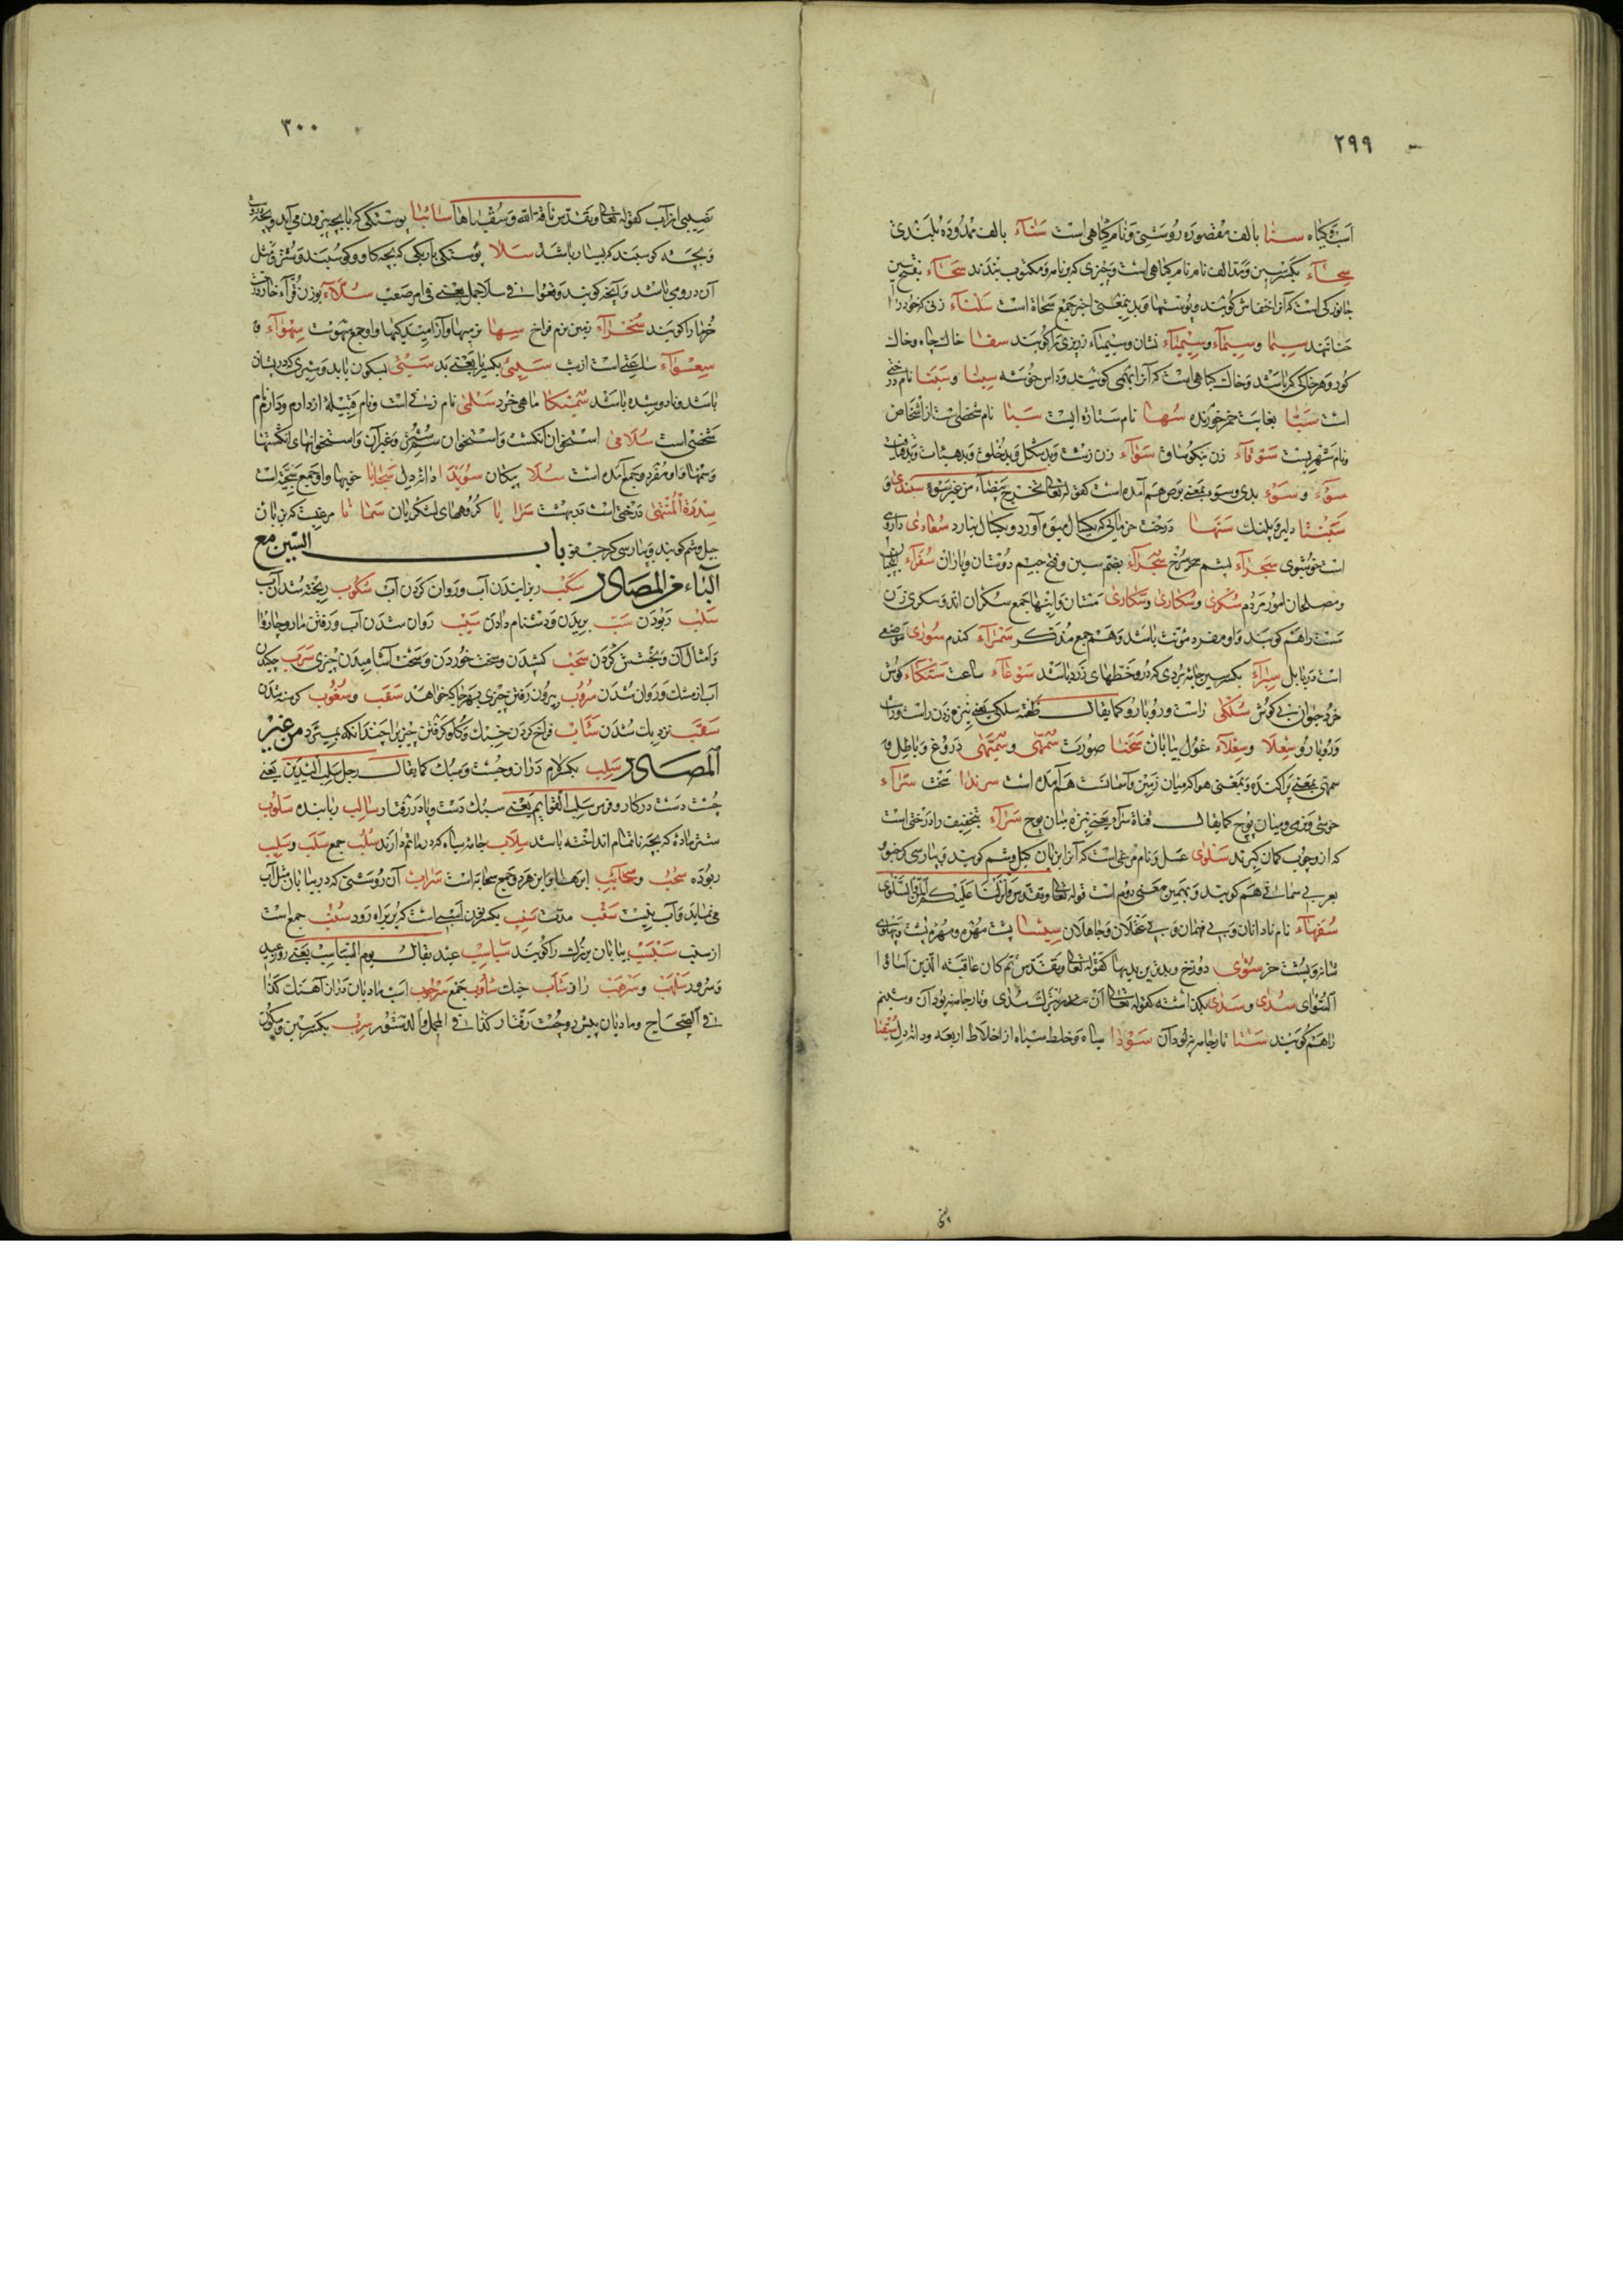 ٢٩٩
است و کیاه سنا بالف مقصوره روشنی و نام کیاهی است سناء بالف ممدوده بلندی
سحاء بکسر سین و مد الف نام کیاهی است و چیزی که بر نامه و مکتوب بندند سحاء بفتح سین
جانورکی است که آنرا خفاش کویند و پوستها و بدین معنی اخیر جمع سحاة است سلتاء زنی که خود را
حنا نهد سیما و سیماء و سیمیاء نشان و سیمیاء نیز چیزی را کویند سفا خاک چاه و خاک
کور و هر خاکی که باشد و خاک کیاهی است که آنرا بهمی کویند و داس خوشه سبا و سبتا نام درختی
است سبا بغایت خمر خورنده سها نام ستاره ایست سبا نام شخصی است از اشخاص
و نام شهریست سوقاء زن نیکو ساق سواء زن زشت و بد شکل و بد خلق و بد هیئات
سوء و سوء بدی و سوء بمعنی برص هم آمده است کقوله تعالی تخرج بیضاء من غیر سوء سبندی و
سبنتا دلیر و پلنک سنها درخت خرمائی که یکسال میوه آورد و یکسال نیارد سعادی داروی
است خوشبوی سجراء چشم سرخ سجراء بضم سین و فتح جیم دوستان و یاران سفراء
و مصلحان امور مردم سکری و سکاری و سکاری مستان و اینها جمع سکران اند و سکری زن
مست را هم کویند و او مفرد مؤنث باشد و هم جمع مذکر سمراء کندم سوری موضعی
است در بابل سیراء بکسر سین جامه بردی که درو خطهای زرد باشد سوعاء ساعت سکاء کوش
خرد حیوان بی کوش سلکی راست و روباروی کما یقال طعنه سلکی یعنی نیزه زدن راست
و روبارو سعلا و سعلاء غول بیابان سحنا صورت سمهی و سمیهی دروغ و باطل و
سمهی بمعنی پراکنده و بمعنی هوا که میان زمین و آسمانست هم آمده است سرندا سخت سراء
خوشی و نیزه میان پوچ کما یقال قناة سراء یعنی نیزه میان پوچ سراء بتخفیف را درختی است
که از و چوب کمان کیرند سلوی عسل و نام مرغی است که آنرا بزبان کیل وشم کویند و بپارسی کرجفو
بعربی سمانی هم کویند و بهمین معنی دوم است قوله تعالی و تقدس و انزلنا علیکم المن والسلوی
سفهاء نام نادانان و بی فهمان و بی عقلان و جاهلان سیسا پشت مهره و مهره پشت
شانه و پشت خر سوأی دوزخ و بدترین بدیها کقوله تعالی و تقدس ثم کان عاقبة الذین اساؤا
السوأی سدی و سدی بکذاشته کقوله تعالی ان یترک سدی و تار جامه و پود آن و شبنم
را هم کویند ستا تار جامه نه پود آن سودا سیاه و خلط سیاه از اخلاط اربعه و دانه دل سقیا
٣٠٠
نصیبی از آب کقوله تعالی و تقدس ناقة الله و سقیاها سابیا پوستکی که با بچه بیرون می آید
و بچه کوسفند که بسیار باشد سلا پوستکی باریکی که بچه کاو و کوسفند و شتر و مثل
آن درو می باشد سلاء بوزن قراء خار درخت
خرما را کویند سخراء زمین نرم فراخ سها سهواء و
سعواء ساعتی است از شب سیئ بکسر یا یعنی بد سبئی بسکون یا بد و شیری که در پستان
باشد و نا دوشیده باشد سمیکا ماهی خرد سلمی نام زنی است و نام قبیله از دارم و دارم نام
شخصی است سلامی استخوان انکشت و استخوان سم شتر و غیر آن و استخوانهای انکشتها
و سمها و او مفرد و جمع آمده است سلا پیکان سویدا دانه دل سجایا خویها و او جمع سجیه است
سدرة المنتهی درختی است در بهشت سرایا کروههای لشکریان سمانا مرغیست که بزبان
جیل وشم کویند و بپارسی کرجفو باب السین مع
الباء من المصادر سکب ریزانیدن آب و روان کردن آب سکوب ریخته شدن آب
سلب ربودن سب بریدن و دشنام دادن سیب روان شدن آب و رفتن مار و چاروا
و امثال آن و بخشش کردن سحب کشیدن و سخت خوردن و سخت آشامیدن چیزی سرب چکیدن
آب از مشک و روان شدن سروب بیرون رفتن چیزی بهر جا که خواهد سغب و سغوب کرسنه شدن
سقب نزدیک شدن سأب فراخ کردن خیک و کلو کرفتن چیزی را چندانکه بمیرد من غیر
المصادر سلب بکسر لام دراز و چست و سبک کما یقال رجل سلب الیدین یعنی
چست دست در کار و فرس سلب القوایم یعنی سبک دست و پا در رفتار سالب رباینده سلوب
شتر ماده که بچه ناتمام انداخته باشد سلاب جامه سیاه که در ماتم دارند سلب جمع سلب و سلیب
ربوده سحب و سحایب ابرها و این هر دو جمع سحابه است سراب آن روشنی که در بیابان مثل آب
می نماید و آب نیست سقب مدت سبب
از سبب سبسب بیابان بزرک را کویند سباسب عید یقال یوم السباسب یعنی روز عید
و سرود سلهب و سرحب راز سأب خیک سؤوب جمع سرحوب اسب مادیان دراز آهنک کذا
فی الصحاح و مادیان پیش رو و چست رفتار کذا فی المجمل و الدستور سرب بکسر سین و سکون